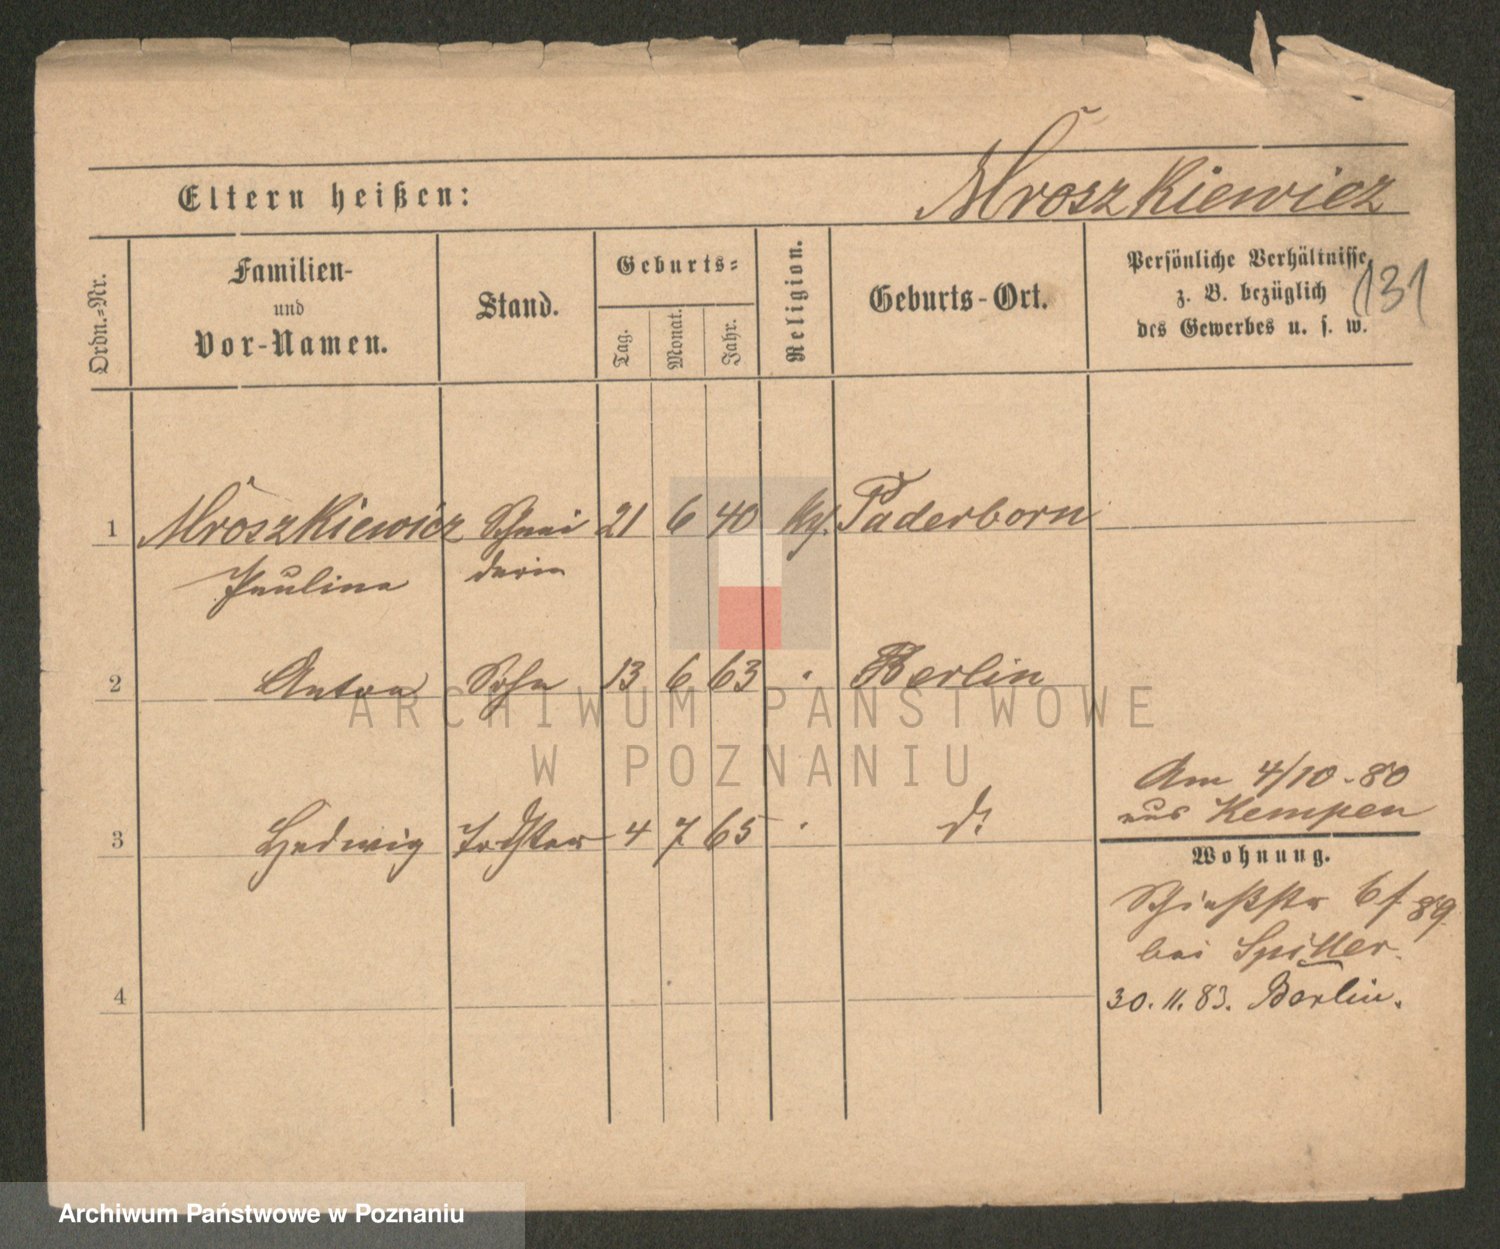 Mroszkiewicz
Eltern heißen:
131
Ordn.-Nr.
Familien-
und
Vor-Namen.
Stand.
Geburts-
Tag.
Monat.
Jahr.
Religion.
Geburts-Ort.
Persönliche Verhältnisse
z. B. bezüglich
des Gewerbes u. s. w.
1 Mroszkiewicz Schnei 21 6 40 Paderborn
Pauline derin
2 Anton Sohn 13 6 63 " Berlin
3 Hedwig Tochter 4 7 65 " do
Am 4/10.80
aus Kempen
Wohnung.
Schießstr 6 f. 89.
bei Spiller.
4
30.11.83. Berlin.
ARCHIWUM PAŃSTWOWE
W POZNANIU
Archiwum Państwowe w Poznaniu